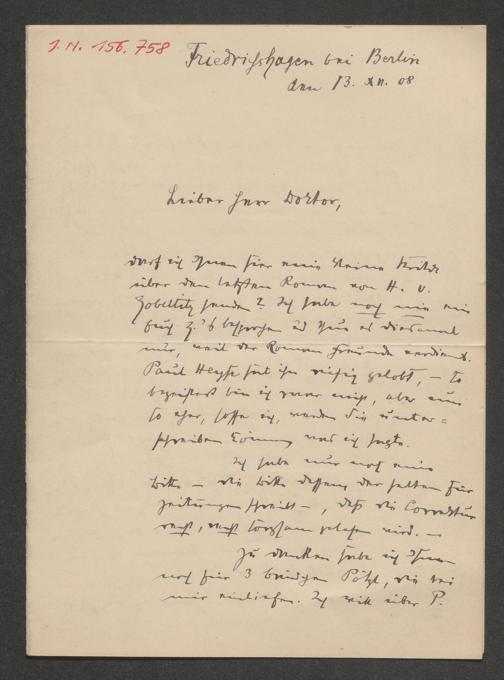 I. N. 156.758
Friedrichshagen bei Berlin
den 13. XII. 08
Lieber Herr Doktor,
darf ich Ihnen hier eine kleine Kritik
über den letzten Roman von H. v.
Zobeltitz senden? Ich habe noch nie ein
Buch Z.'s besprochen und thue es diesmal
nur, weil der Roman Freunde verdient.
Paul Heyse hat ihn riesig gelobt, – so
begeistert bin ich zwar nicht, aber um
so eher, hoffe ich, werden Sie unter=
schreiben können was ich sagte.
Ich habe nur noch eine
Bitte – die Bitte dessen, der selten für
Zeitungen schreibt –, daß die Correktur
recht, recht sorgsam gelesen wird. –
Zu danken habe ich Ihnen
noch für 3 Bändchen Pötzl, die bei
mir einliefen. Ich will über P.